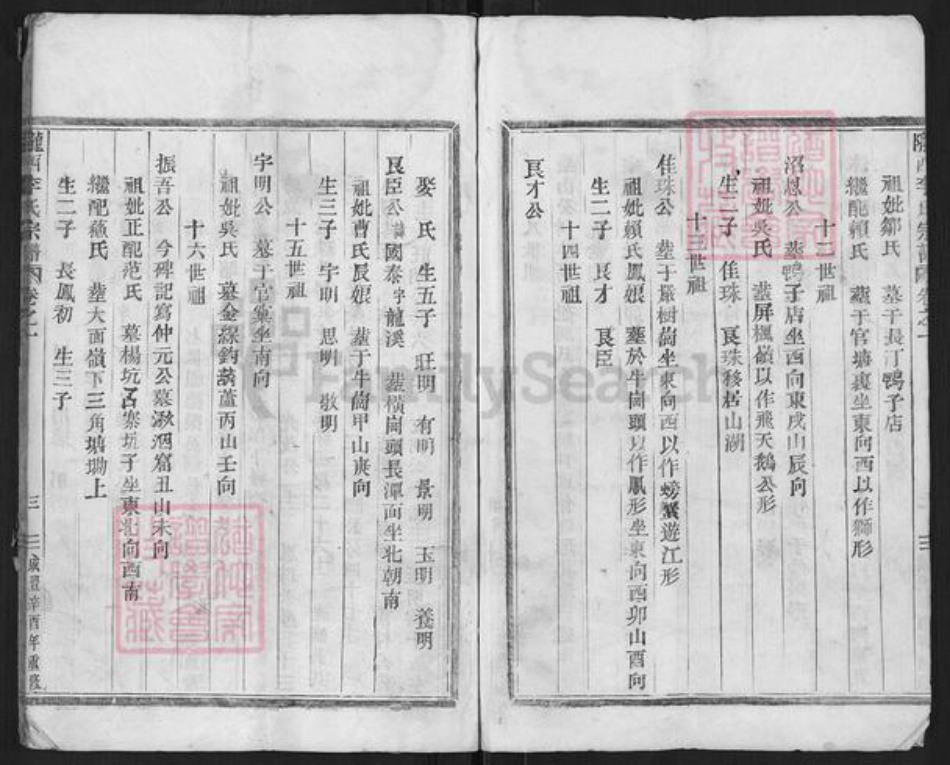 隴西李氏宗譜 卷之一
祖妣鄒氏 墓于長汀鴨子店
繼配賴氏 塟于官塘裏坐東向西以作獅形
十二世祖
沼恩公 塟鴨子店坐西向東戌山辰向
祖妣吳氏 塟屏楓嶺以作飛天鵝公形
生二子 佳珠 良珠移居山湖
十三世祖
佳珠公 塟于嚴樹崗坐東向西以作螃蟹遊江形
祖妣賴氏鳳娘 塟於牛崗頭以作鳳形坐東向酉卯山酉向
生二子 良才 良臣
十四世祖
良才公
三
娶氏 生五子 旺明 有明 景明 玉明 養明
良臣公 國泰字龍溪 塟橫崗頭長潭面坐北朝南
祖妣曹氏辰娘 塟于牛崗甲山庚向
生三子 宇明 思明 敬明
十五世祖
宇明公 墓于官窠坐南向
祖妣吳氏 墓金線鈎葫蘆丙山壬向
十六世祖
振吾公 今碑記寫仲元公墓湖洄窩丑山未向
祖妣正配范氏 墓楊坑石寨坑子坐東北向西南
繼配蘓氏 塟大面嶺下三角塘墈上
生二子 長鳳初 生三子
隴西李氏宗譜 卷之一 三 咸豐辛酉年重修
FamilySearch